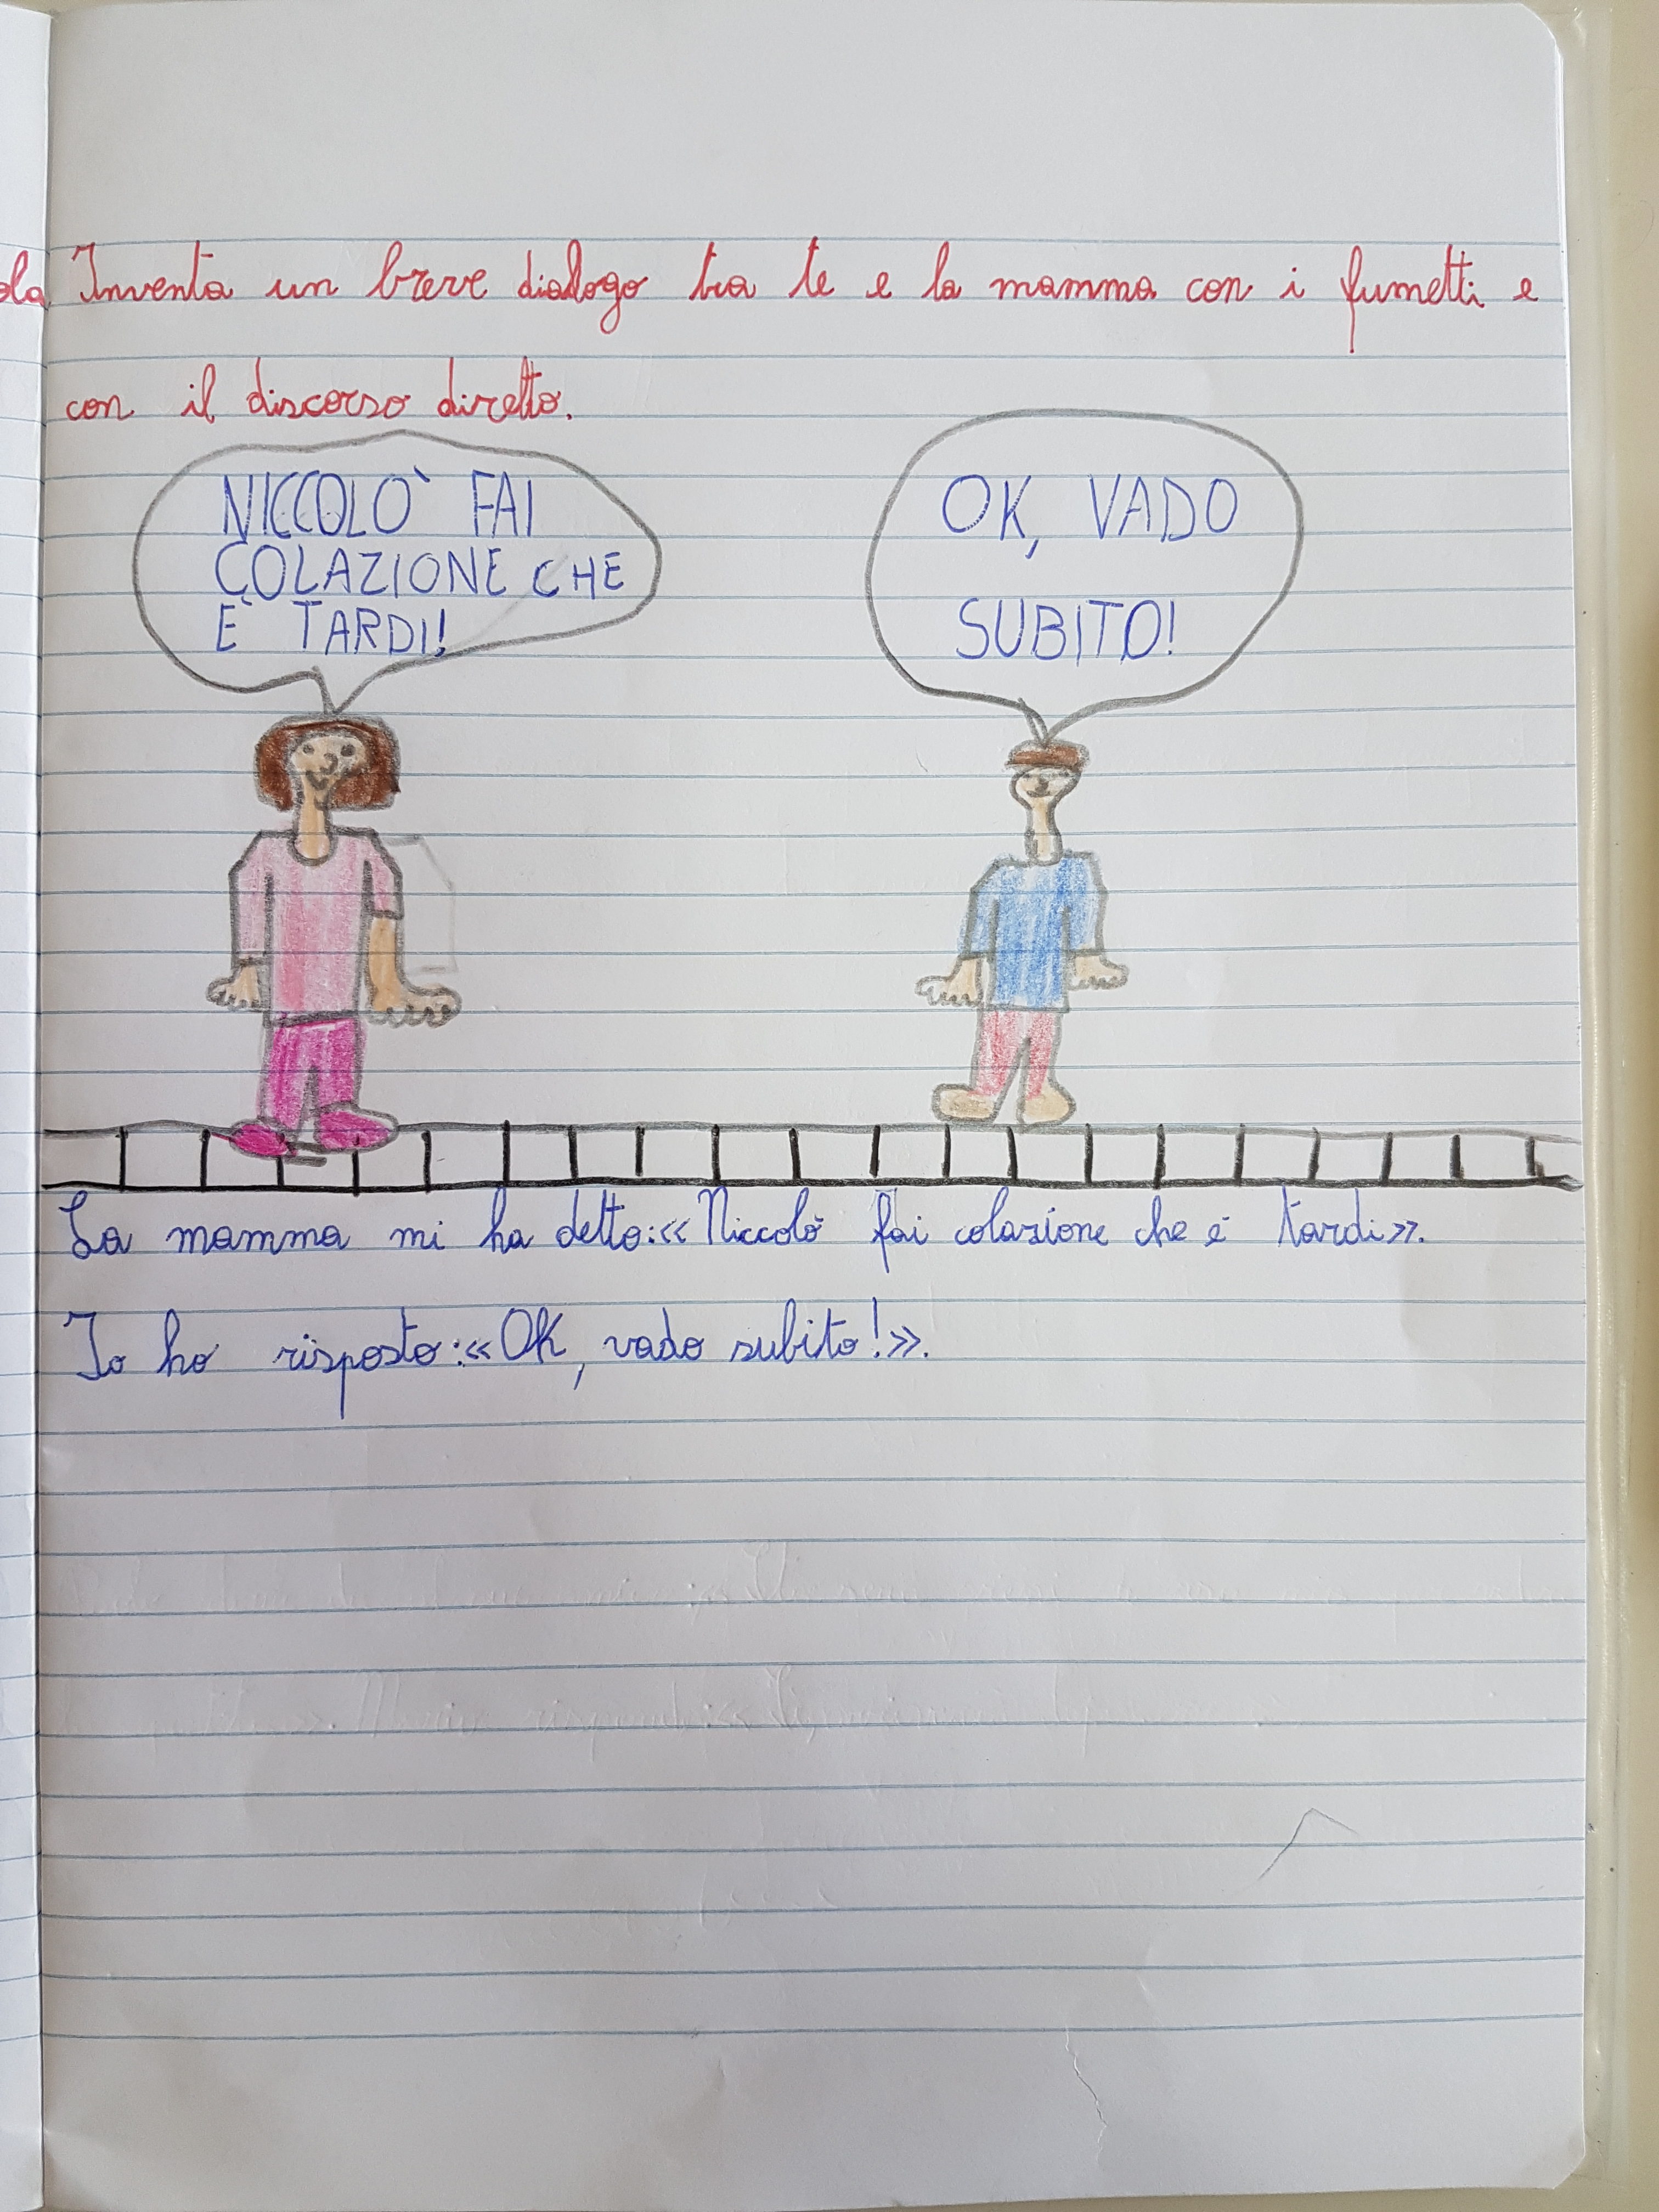 ola
Inventa un breve dialogo tra te e la mamma con i fumetti e
con il discorso diretto.
NICCOLÒ FAI
COLAZIONE CHE
È TARDI!
OK, VADO
SUBITO!
La mamma mi ha detto:«Niccolò fai colazione che è tardi».
Io ho risposto:«OK, vado subito!».